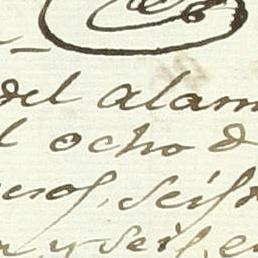 del alam
l ocho d
esos, seis
y seis, e